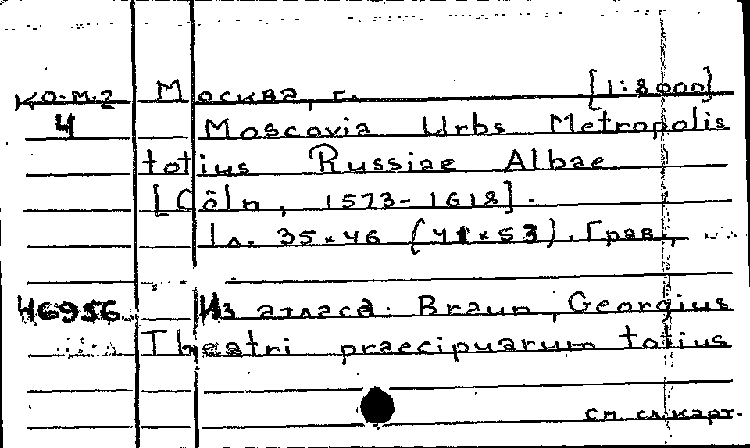 Ко-м-2 Москва, г. [1:8000]
4 Moscovia Urbs Metropolis
totius Russiae Albae
[Cöln, 1573-1618].
1 л. 35×46 (41×53). Грав.,
46956 Из атласа: Braun, Georgius
Theatri praecipuarum totius
см. сл. карт.